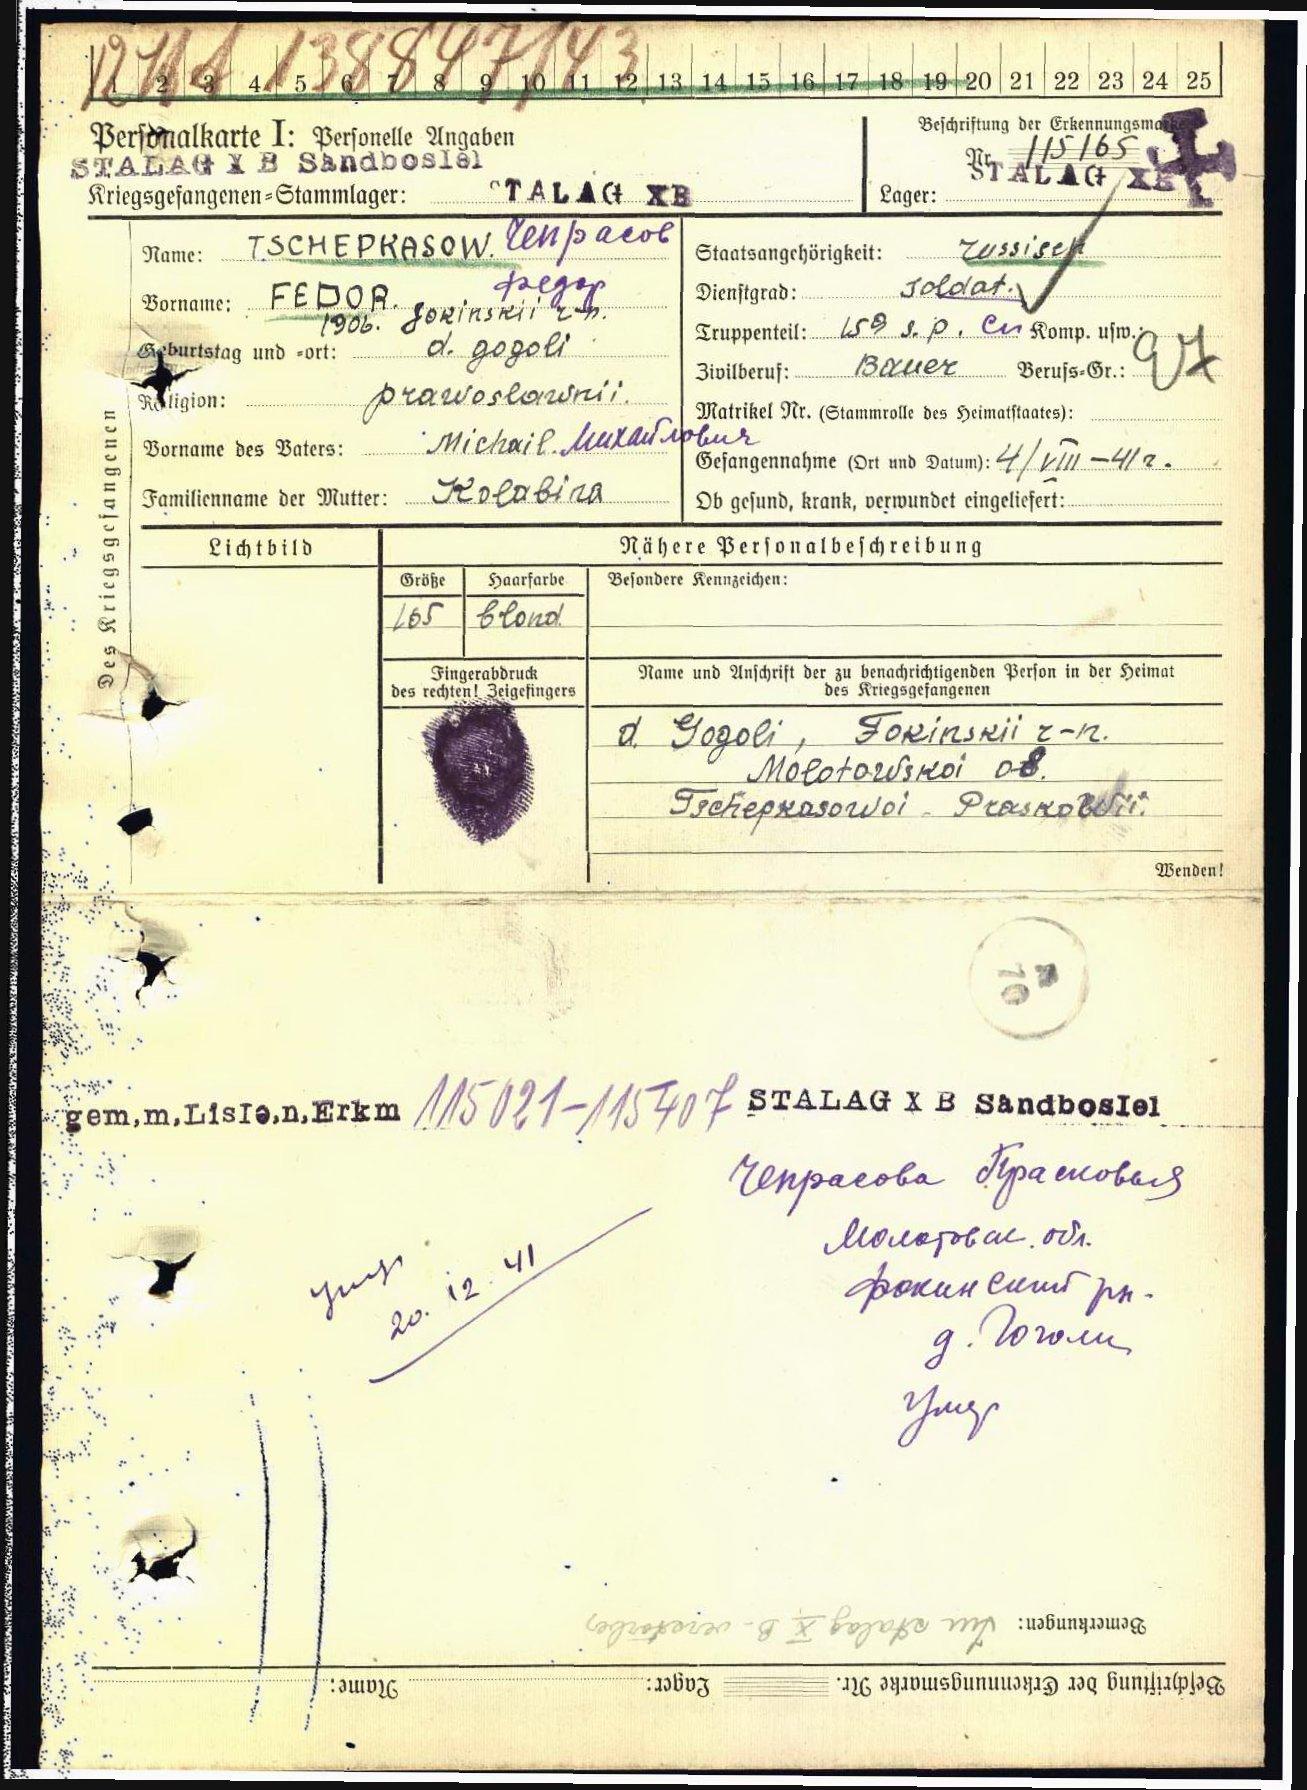 138847/43
1 2 3 4 5 6 7 8 9 10 11 12 13 14 15 16 17 18 19 20 21 22 23 24 25
Personalkarte I: Personelle Angaben
STALAG X B Sandbostel
Kriegsgefangenen-Stammlager: STALAG XB
Beschriftung der Erkennungsmarke
Nr. 115165
STALAG XB
Lager:
Des Kriegsgefangenen
Name: TSCHEPKASOW. Чепрасов
Vorname: FEDOR. Федор
1906. Fokinskii r-n.
Geburtstag und -ort: d. gogoli
Religion: prawoslawnii.
Vorname des Vaters: Michail. Михайлович
Familienname der Mutter: Kolabina
Staatsangehörigkeit: russisch
Dienstgrad: soldat.
Truppenteil: 159 s.p. сп Komp. usw.:
Zivilberuf: Bauer Berufs-Gr.: 97
Matrikel Nr. (Stammrolle des Heimatstaates):
Gefangennahme (Ort und Datum): 4/VIII-41г.
Ob gesund, krank, verwundet eingeliefert:
Lichtbild
Nähere Personalbeschreibung
Größe Haarfarbe Besondere Kennzeichen:
165 blond
Fingerabdruck
des rechten! Zeigefingers
Name und Anschrift der zu benachrichtigenden Person in der Heimat
des Kriegsgefangenen
d. Gogoli, Fokinskii r-n.
Molotowskoi ob.
Tschepkasowoi - Praskowii.
Wenden!
gem.m.Liste.n.Erkm 115021-115407 STALAG X B Sandbostel
Чепрасова Прасковья
Молотовск. обл.
Фокинский рн.
д. Гоголи
Умер
Умер
20. 12. 41
Bemerkungen: Im Stalag X B verstorben
Beschriftung der Erkennungsmarke Nr. Lager: Name: